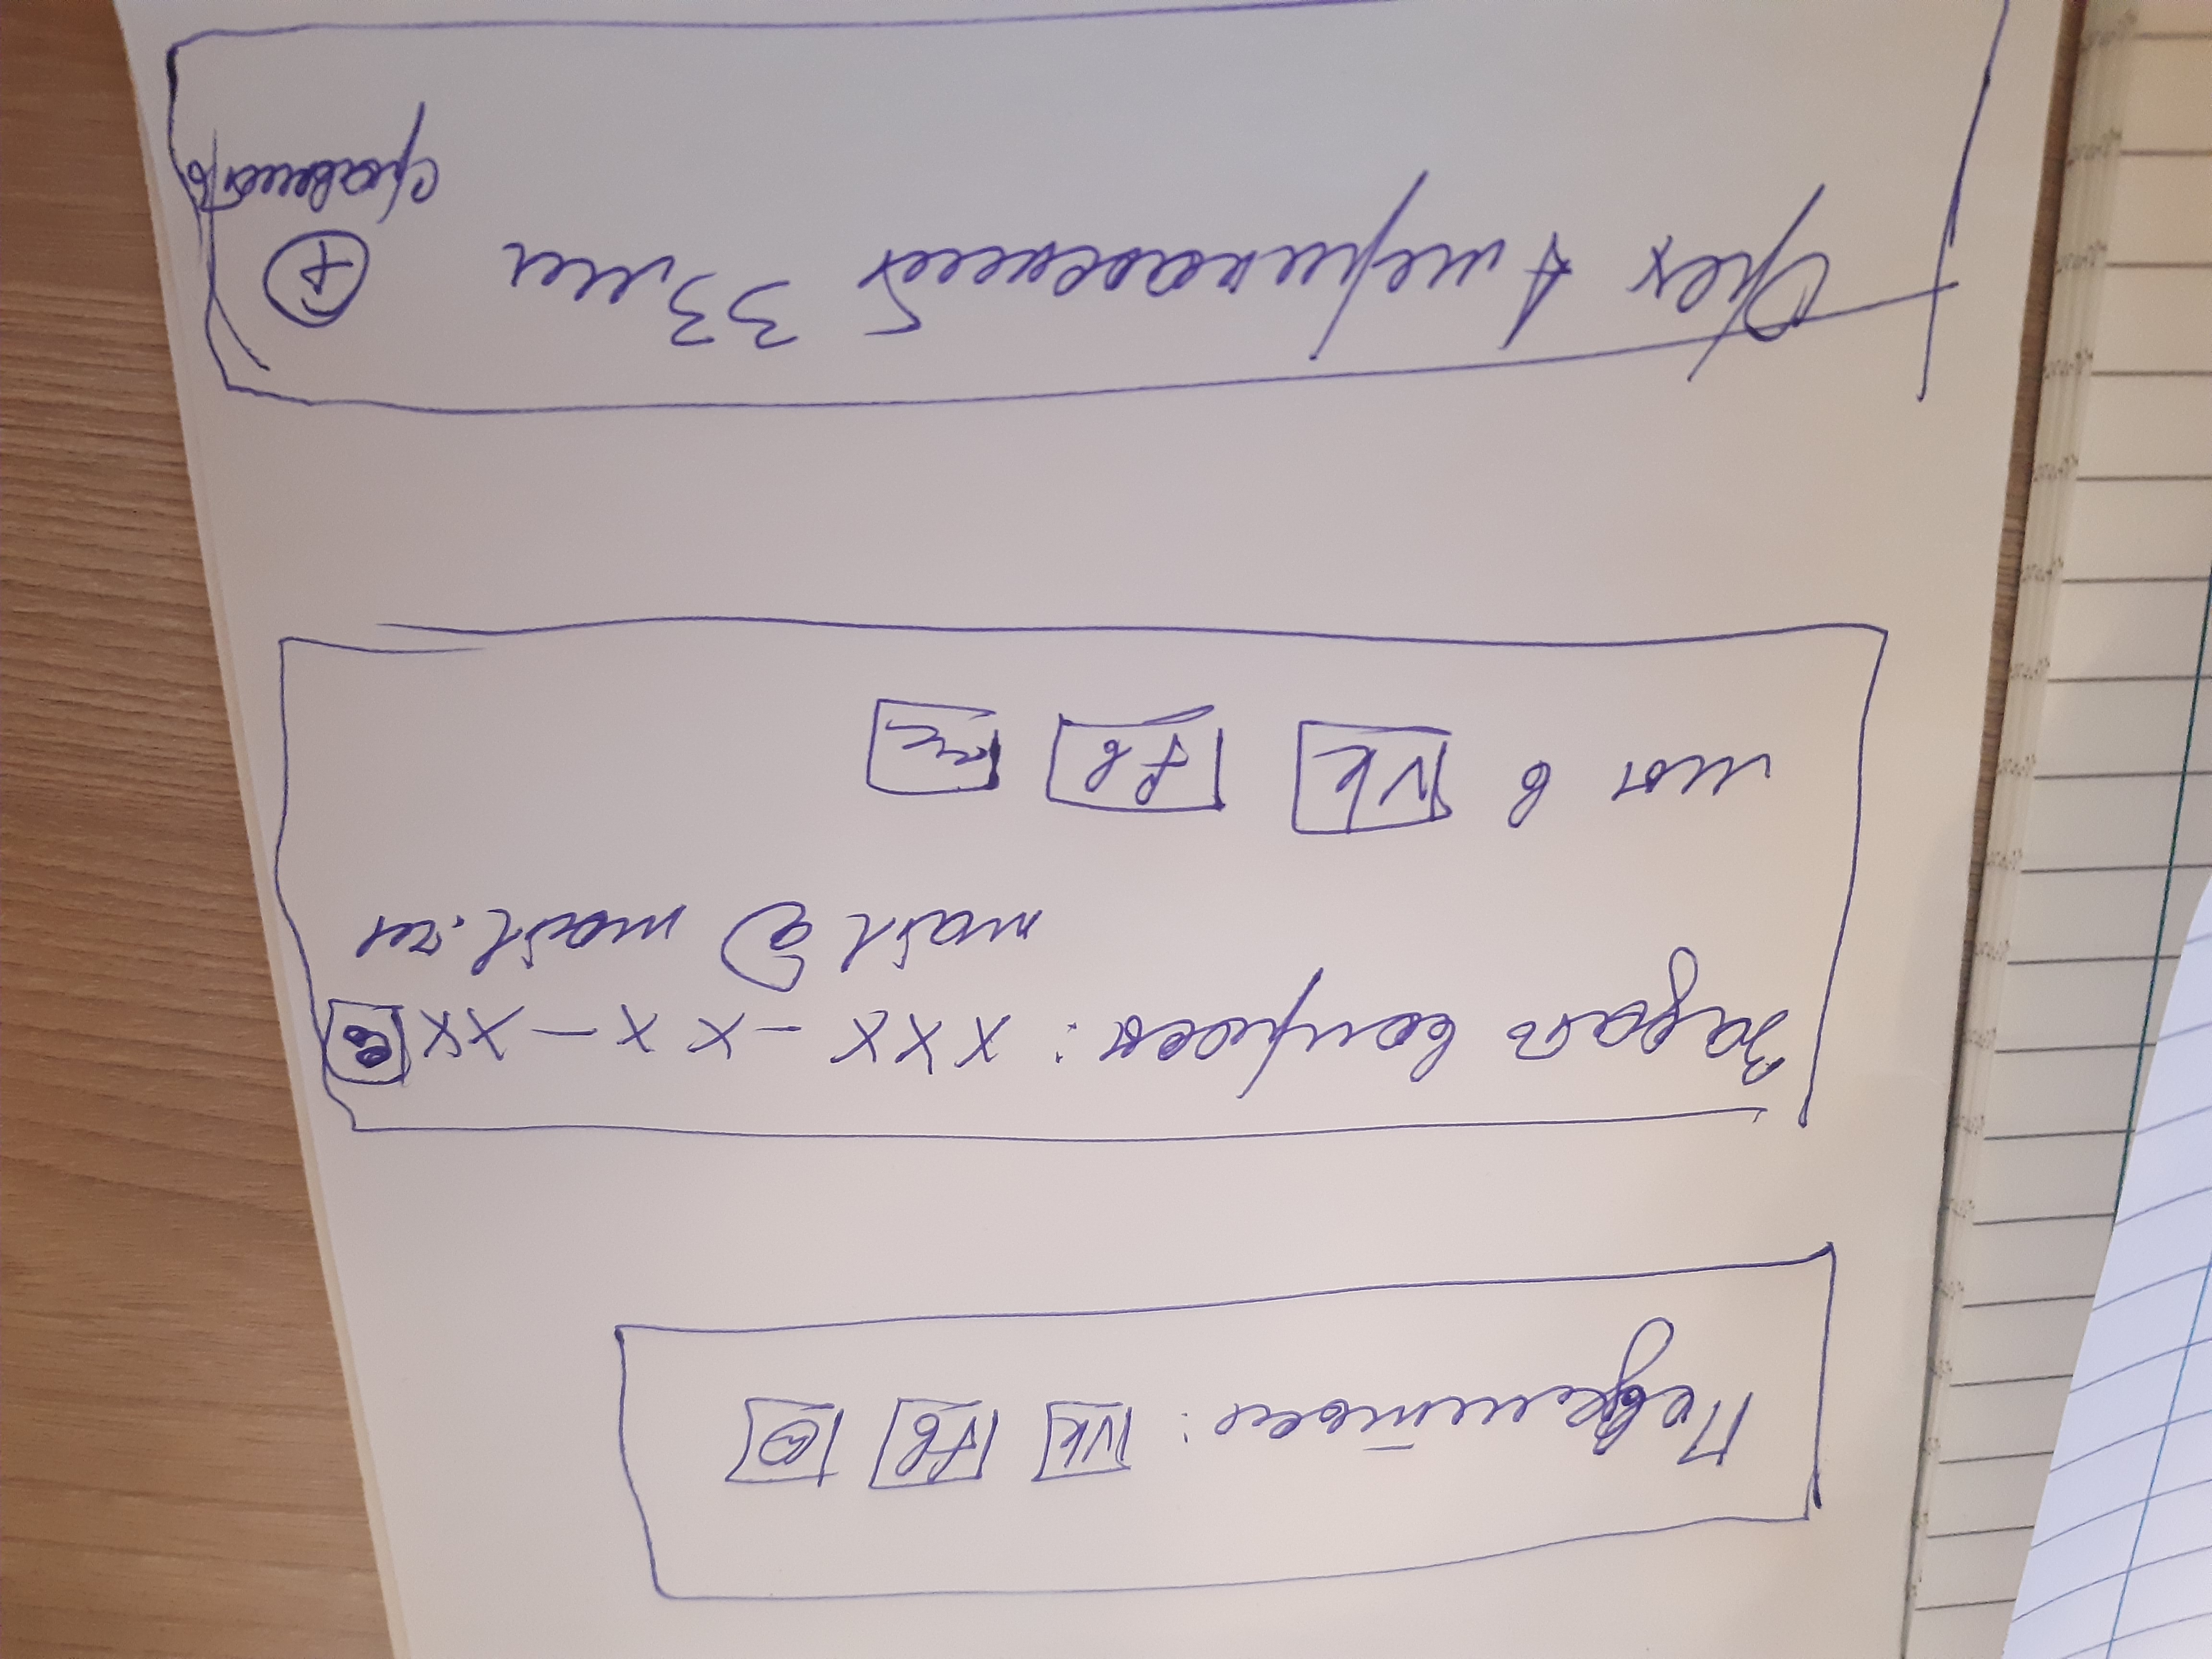 Поделиться: Vk fb
Задать вопросы: xxx – x x – xx
mail @ mail.ru
мы в Vk fb
Орех Американский 33мм +
сравнить